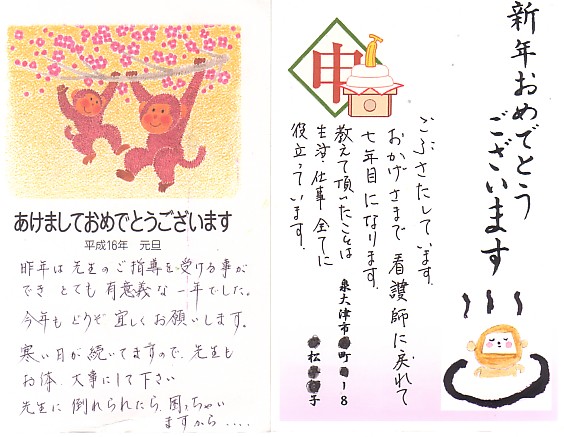 あけましておめでとうございます
平成16年 元旦
昨年は先生のご指導を受ける事が
でき とても有意義な一年でした。
今年もどうぞ宜しくお願いします。
寒い日が続いてますので、先生も
お体、大事にして下さい
先生に倒れられたら、困っちゃい
ますから....
新年おめでとう
ございます
申
ごぶさたしています。
おかげさまで看護師に戻れて
七年目になります。
教えて頂いたことは
生活・仕事全てに
役立っています。
泉大津市 町 18
松 子